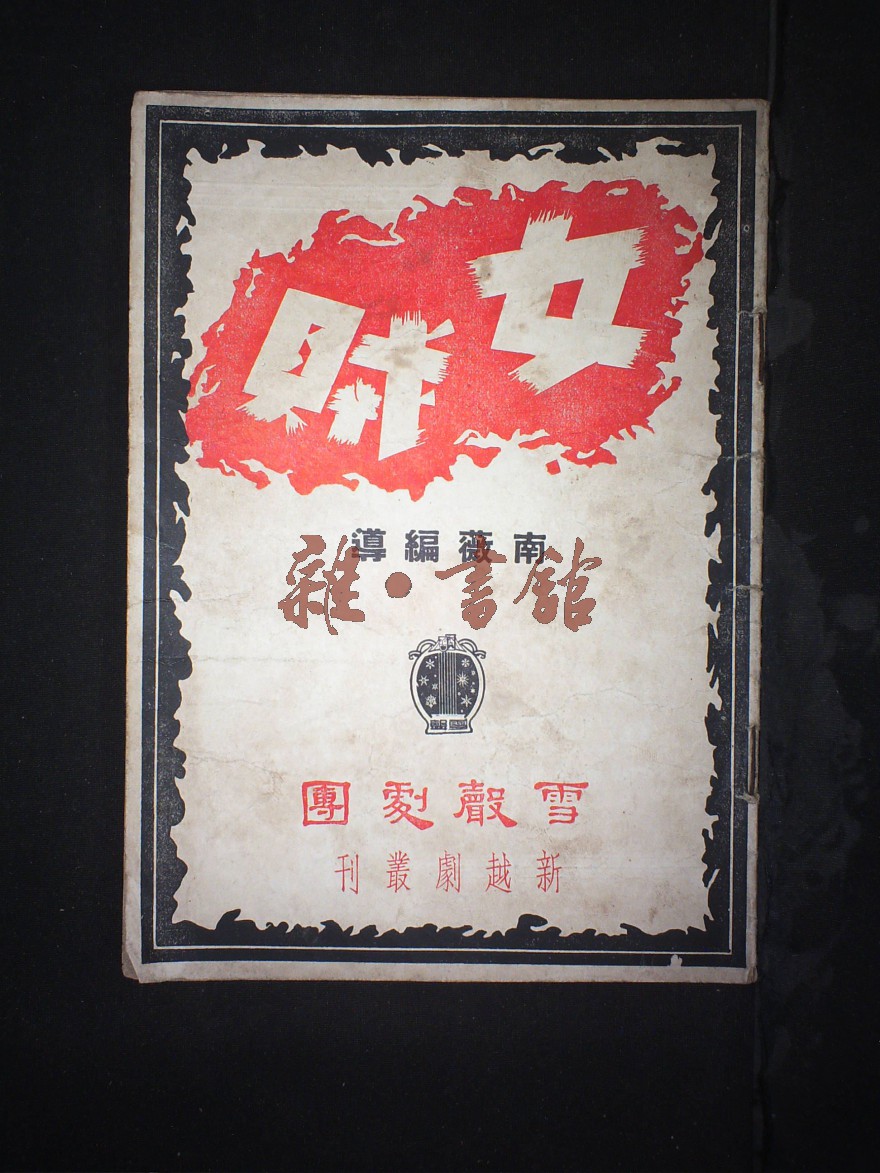 女財
南薇編導
雜·書館
雪聲
雪聲劇團
新越劇叢刊